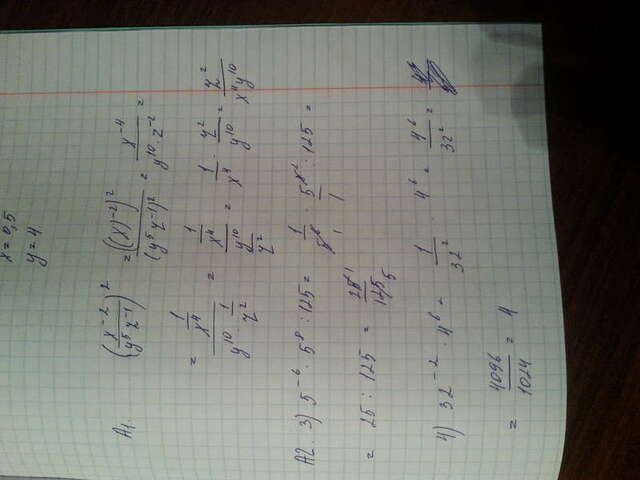 x = 0,5
y = 4
A1. (x⁻²/y⁵z⁻¹)² = ((x)⁻²)²/(y⁵z⁻¹)² = x⁻⁴/y¹⁰·z⁻² =
= (1/x⁴)/(y¹⁰·1/z²) = (1/x⁴)/(y¹⁰/z²) = 1/x⁴ · z²/y¹⁰ = z²/x⁴y¹⁰
A2. 3) 5⁻⁶ · 5⁸ : 125 = 1/5⁶ · 5⁸/1 : 125 =
= 25 : 125 = 25/125 1 5
4) 32⁻² · 4⁶ = 1/32² · 4⁶ = 4⁶/32² =
= 4096/1024 = 4